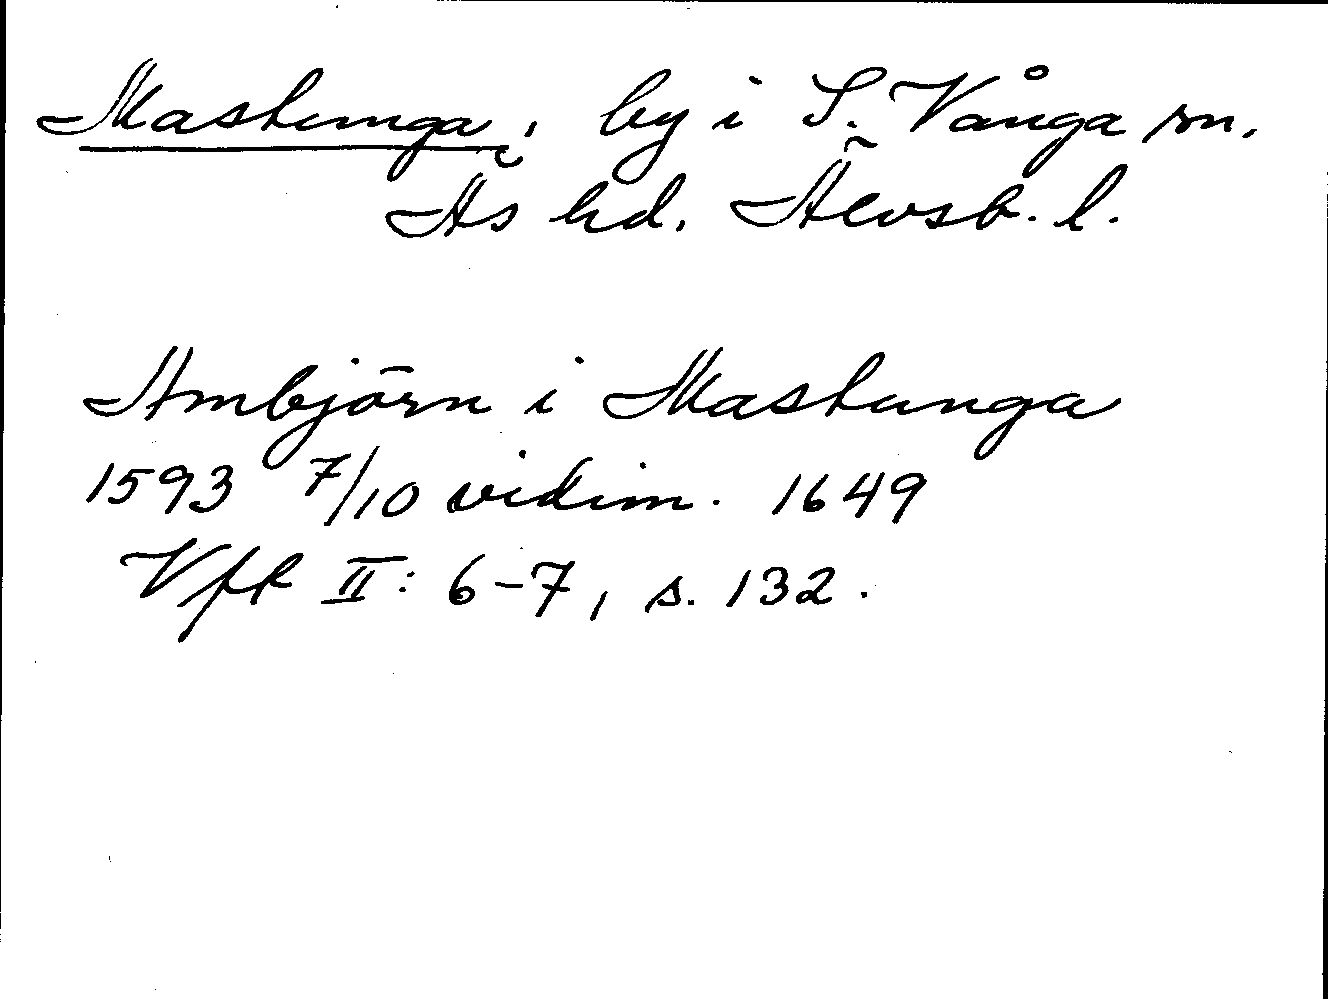 Mastunga, by i S. Vånga sn.
Ås hd. Älvsb. l.
Ambjörn i Mastunga
1593 7/10 vidim. 1649
Vfr II: 6-7, s. 132.